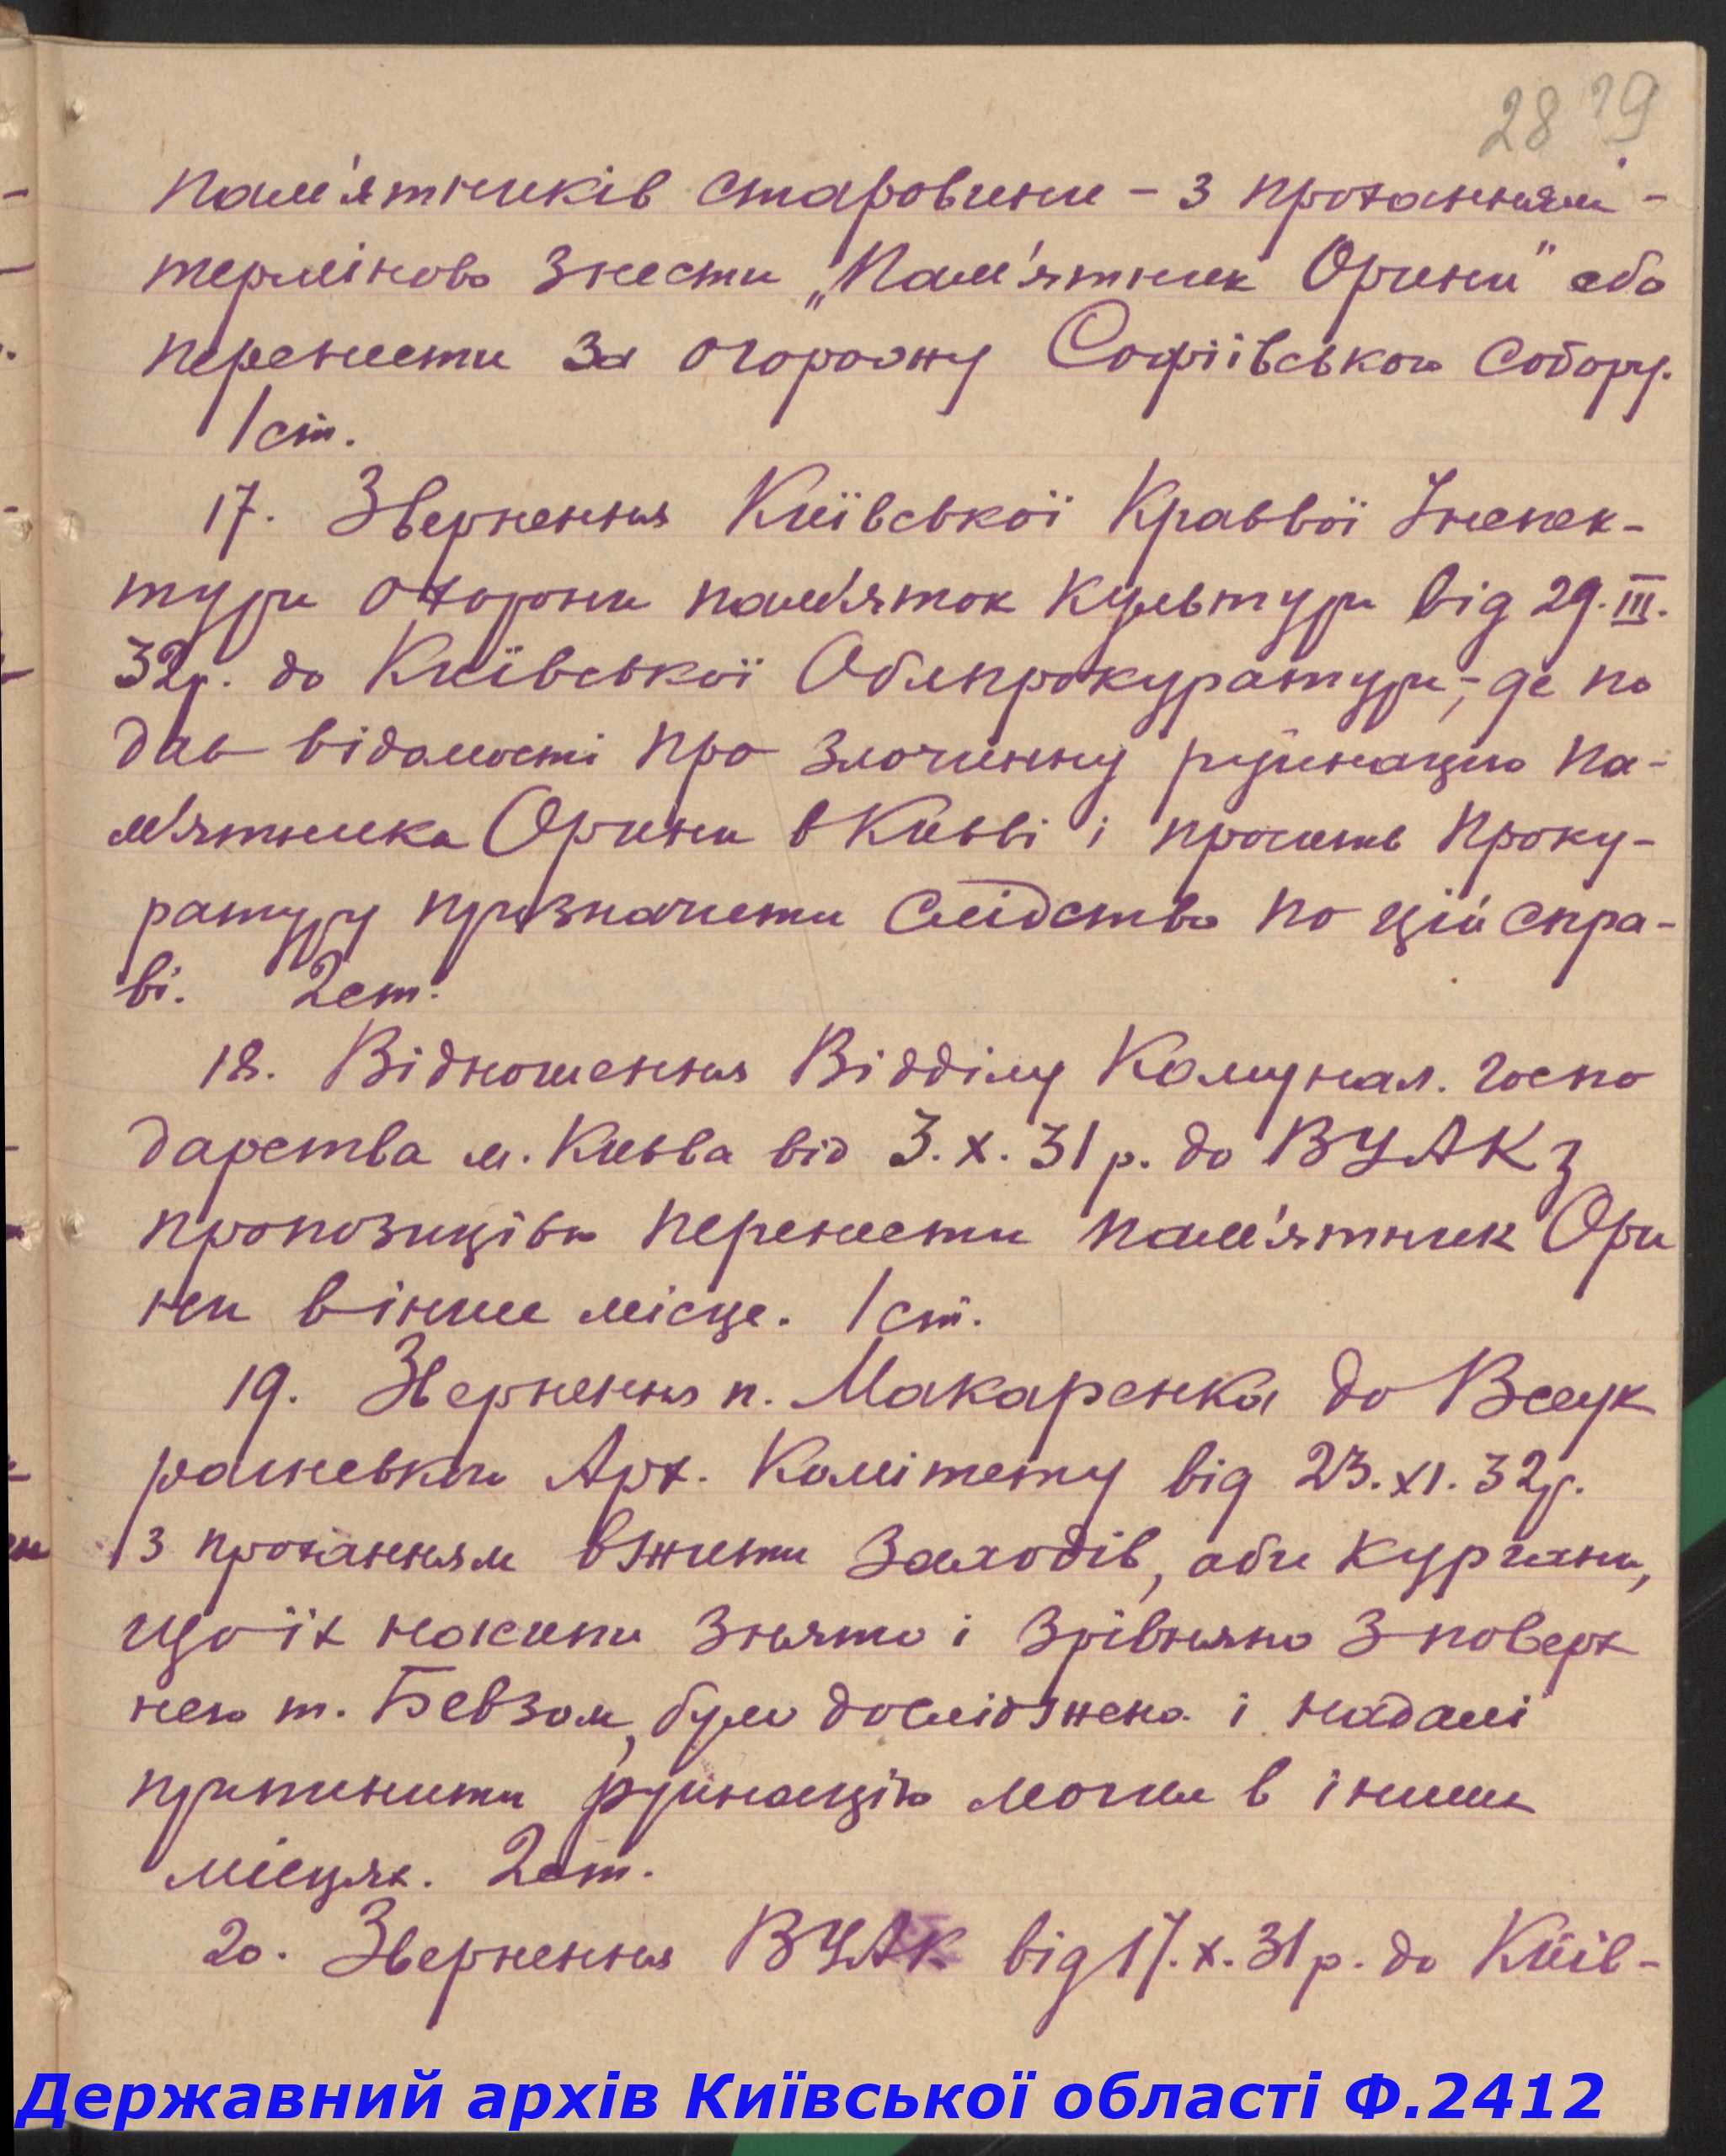 28 29
пам'ятників старовини – з проханням –
терміново знести „Пам'ятник Орини" або
перенести за огорожу Софіївського Собору.
1 ст.
17. Звернення Київської Краєвої Інспек-
тури охорони пам'яток культури від 29.III.
32р. до Київської Облпрокуратури, – де по
дав відомості про злочинну руйнацію па-
м'ятника Орини в Києві і просить проку-
ратуру призначити слідство по цій спра-
ві. 2 ст.
18. Відношення Відділу Комунал. госпо
дарства м. Києва від 3.X.31 р. до ВУАК з
пропозицією перенести пам'ятник Ори
ни в інше місце. 1 ст.
19. Звернення п. Макаренка до Всеук
раїнського Арх. Комітету від 23.XI.32р.
з проханням вжити заходів, аби кургани,
що їх наживи знято і зрівняно з поверх
нею т. Бевзом, було досліджено і надалі
припинити руйнацію могил в інших
місцях. 2 ст.
20. Звернення ВУАК від 17.X.31 р. до Київ-
Державний архів Київської області Ф.2412